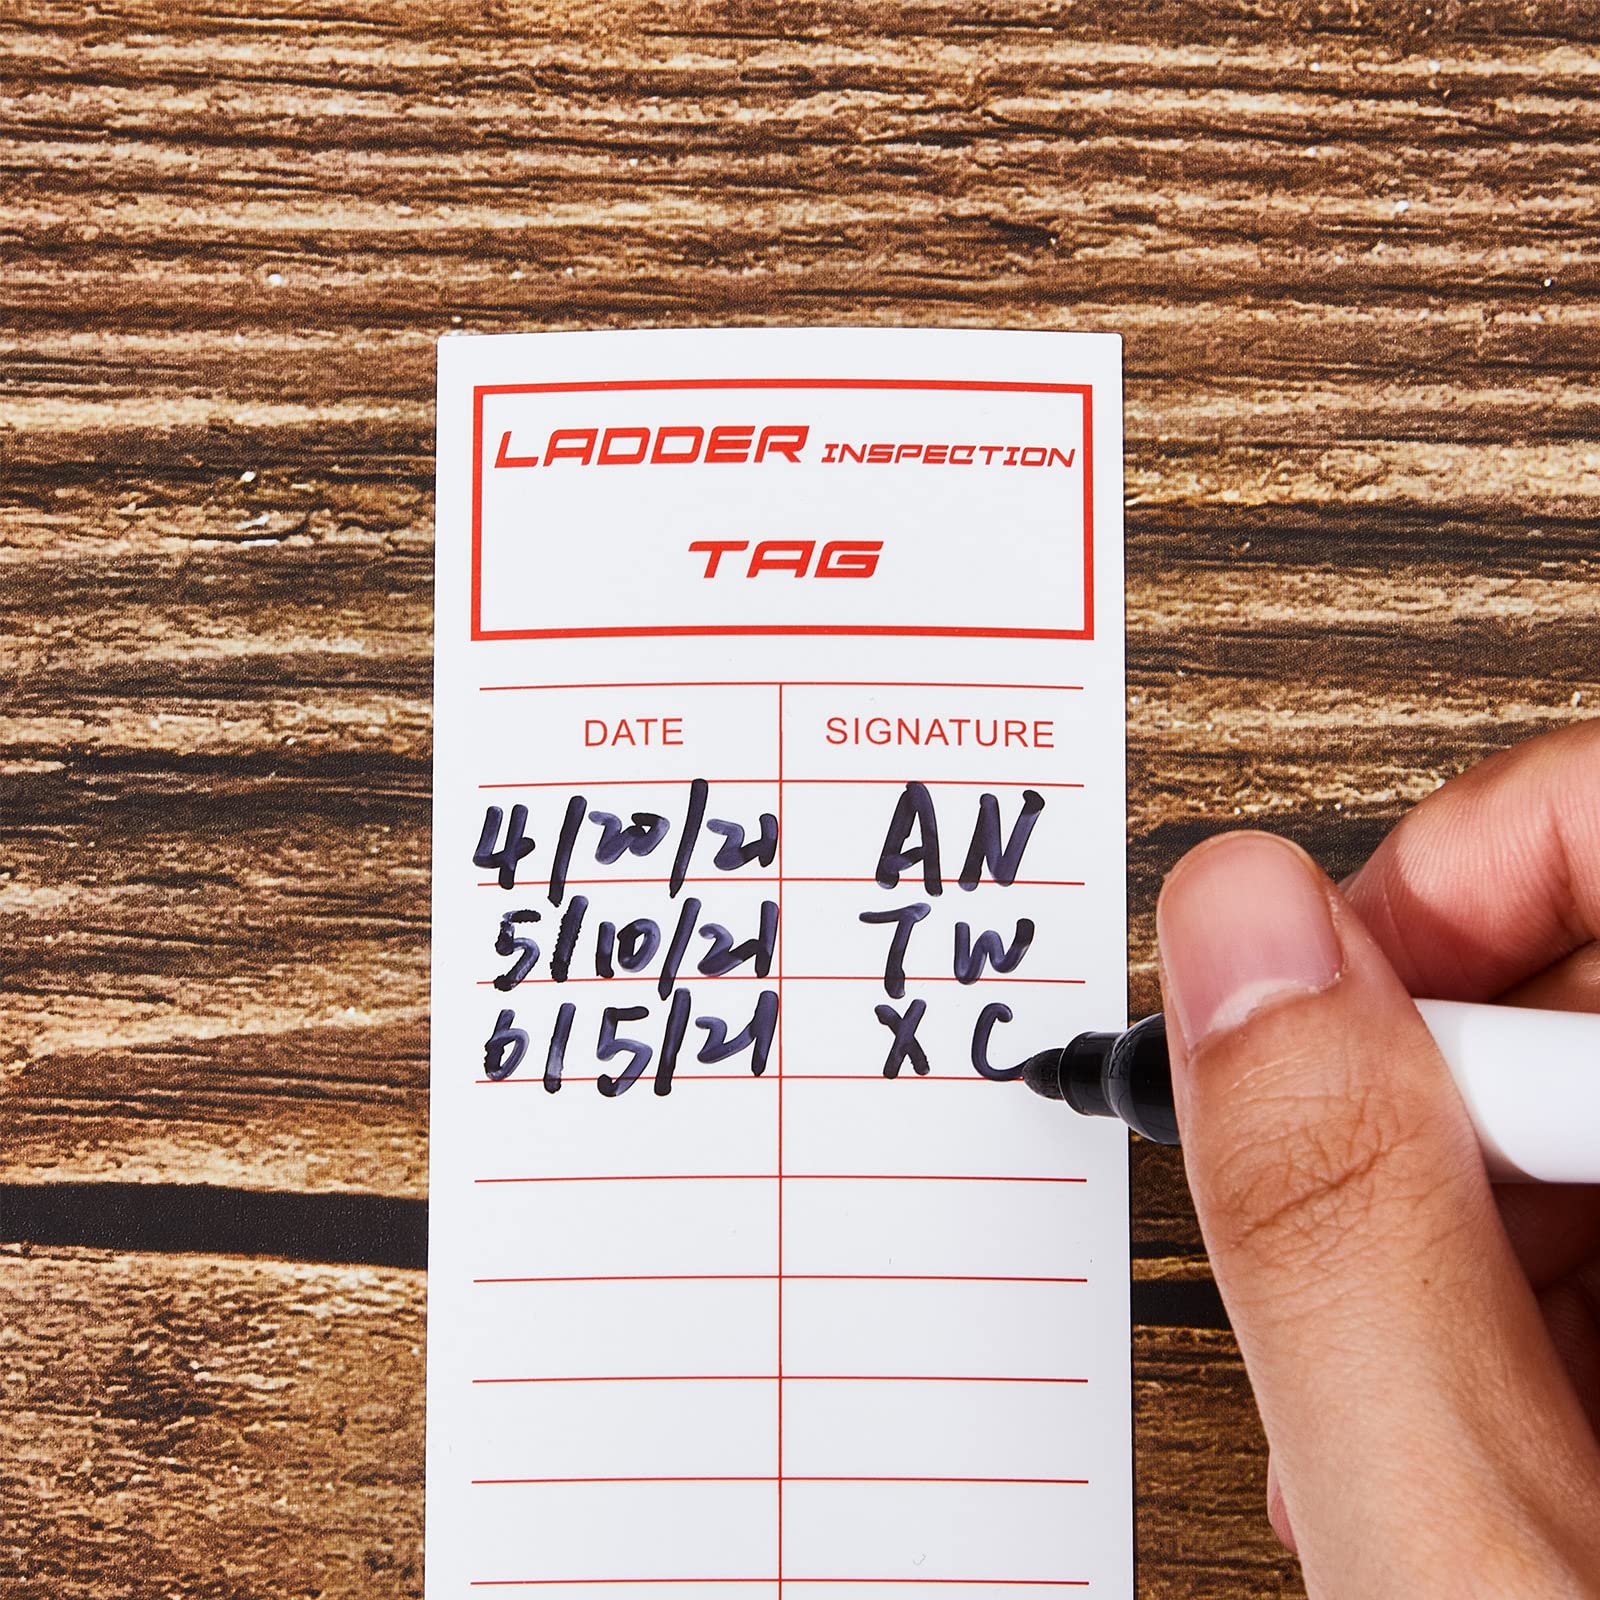 LADDER INSPECTION
TAG
DATE SIGNATURE
4/20/21 AN
5/10/21 TW
6/5/21 XC